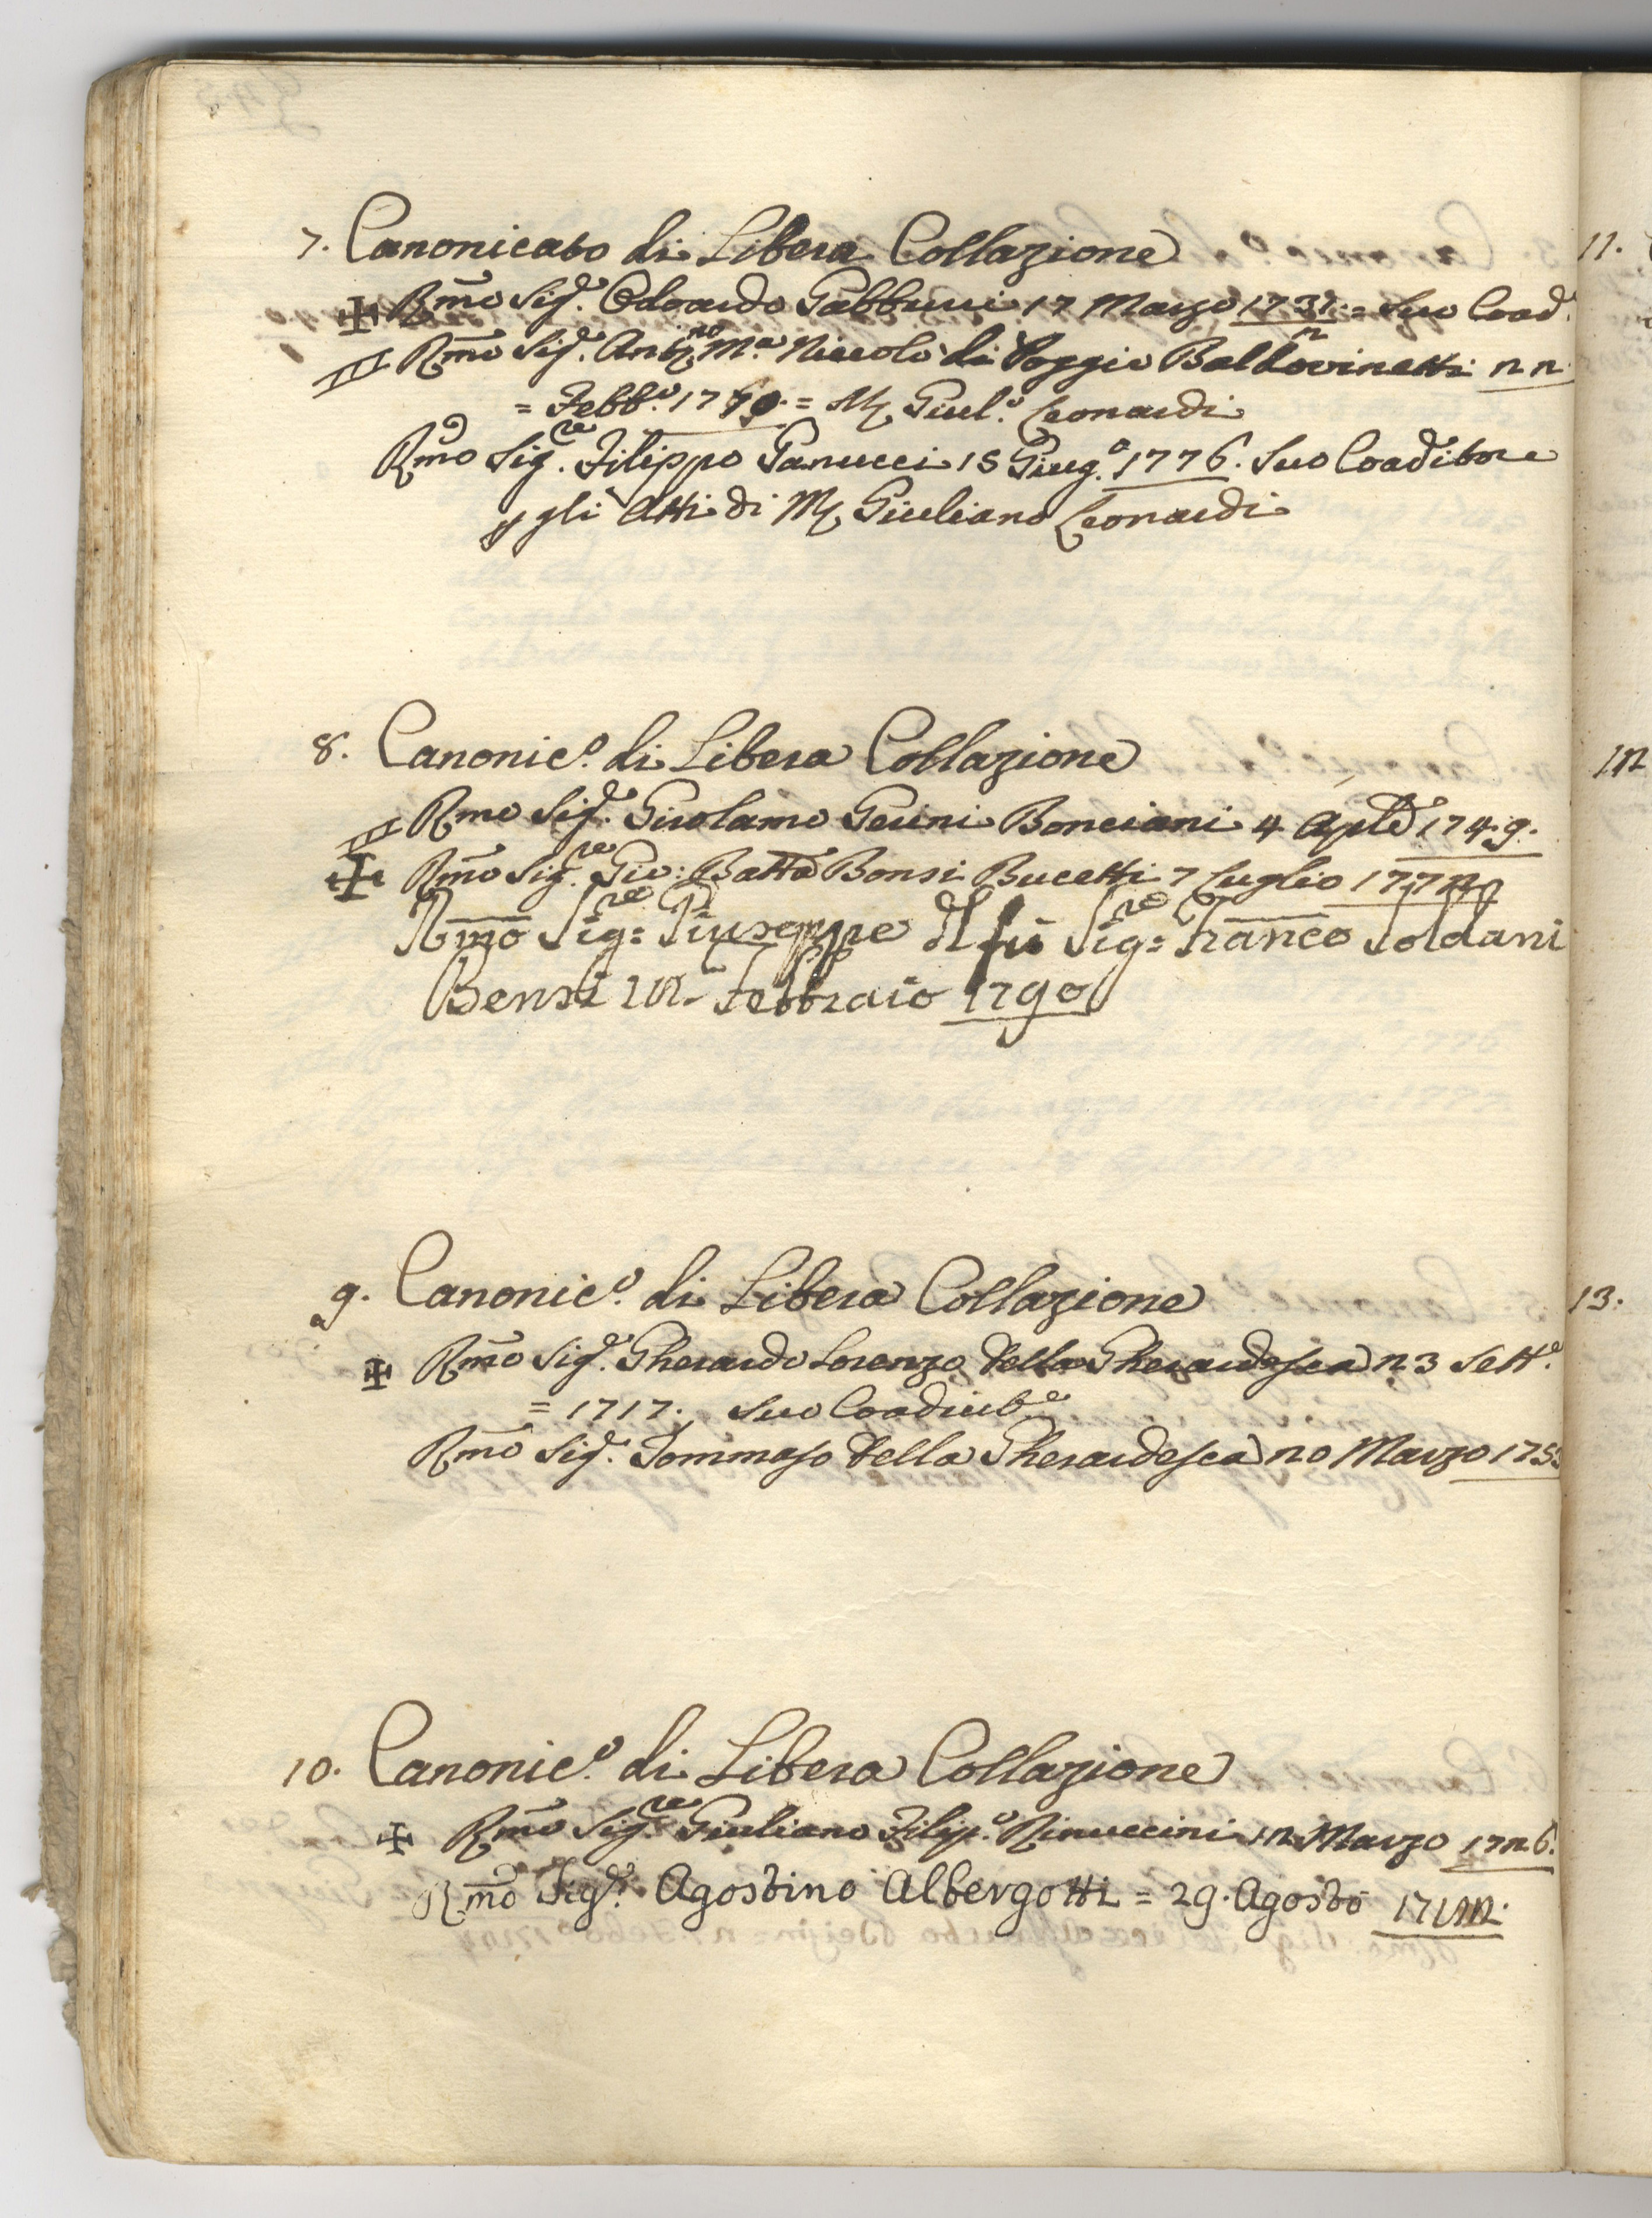 7. Canonicato di Libera Collazione
Rmo Sig.e Odoardo Gabburri 17 Marzo 1731. = Suo Coad.e
Rmo Sig.e Ant.no M.a Niccolò di Poggio Baldovinetti 22
= Febb.o = M Giul.o Leonardi
Rmo Sig.re Filippo Ganucci 15 Giug.o 1776. Suo Coaditore
p gli Atti di M Giuliano Leonardi
8. Canonic.o di Libera Collazione
Rmo Sig.e Girolamo Gerini Bonciani 4 Aple 1749.
Rmo Sig.re Gio: Batta Bonsi Bucetti 7 Luglio
Rmo Sig:re Giuseppe del fù Sig:re Franco Soldani
Bensi Febbraio 1790
9. Canonic.o di Libera Collazione
Rmo Sig.e Gherardo Lorenzo Della Gherardesca 23 Sett.e
= 1717. Suo Coadiut.e
Rmo Sig.e Tommaso Della Gherardesca 20 Marzo
10. Canonic.o di Libera Collazione
Rmo Sig.re Giuliano Filip.o Rinuccini 12 Marzo 1726.
Rmo Sig.e Agostino Albergotti = 29. Agosto
11.
12
13.